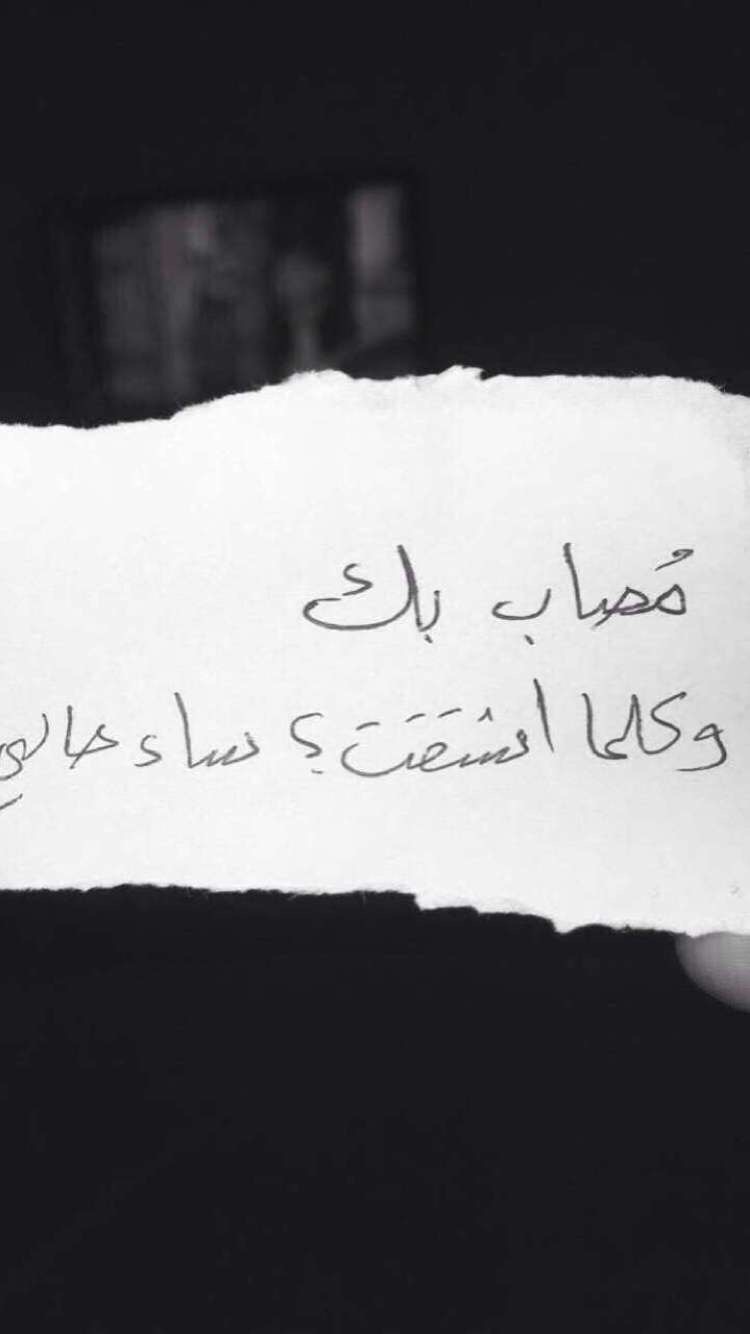 مُصاب بك
وكلما اشتقت؟ ساء حالي